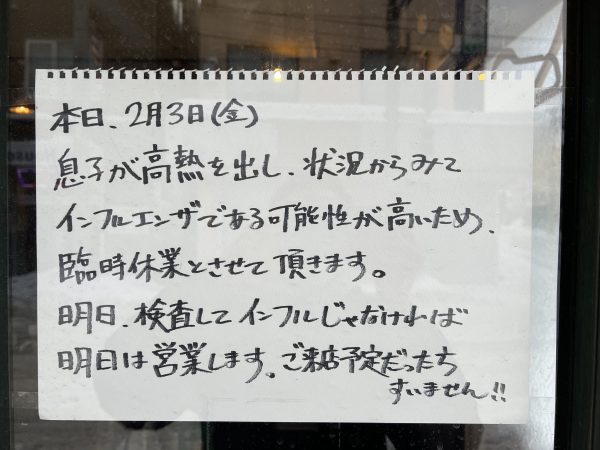 本日、2月3日(金)
息子が高熱を出し、状況からみて
インフルエンザである可能性が高いため、
臨時休業とさせて頂きます。
明日、検査してインフルじゃなければ
明日は営業します。ご来店予定だったち
すいません!!